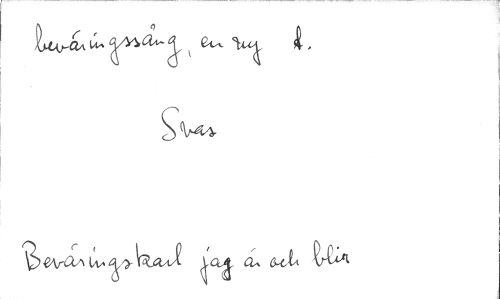 beväringssång, en ny d.
Svas
Beväringskarl jag är och blir